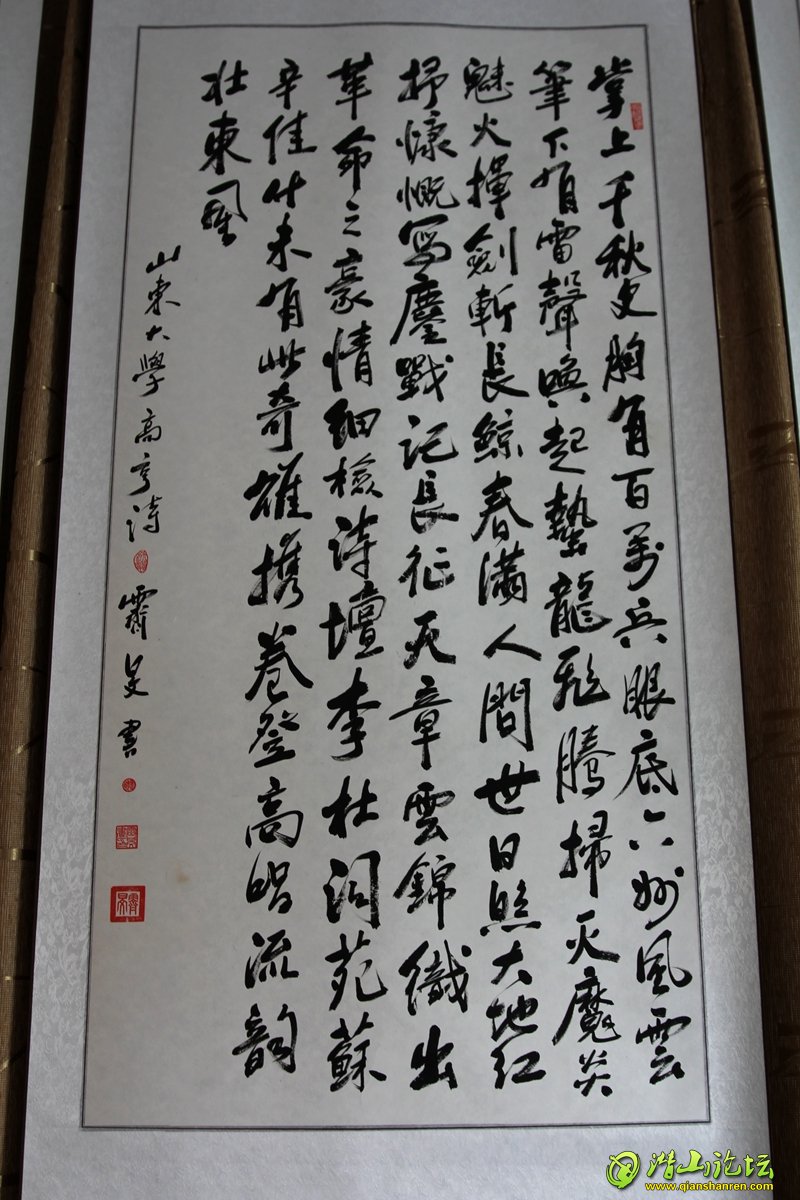 掌上千秋史胸有百萬兵眼底六州風雲
筆下有雷聲喚起蟄龍飛騰掃灭魔炎
魅火揮劍斬長鯨春滿人間世日照大地红
抒慷慨寫鏖戰記長征天章雲錦織出
革命之豪情细檢詩壇李杜詞苑蘇
辛佳什未有此奇雄携卷登高唱流韵
壯東風
山東大學高亨詩 書
潜山论坛
www.qianshanren.com